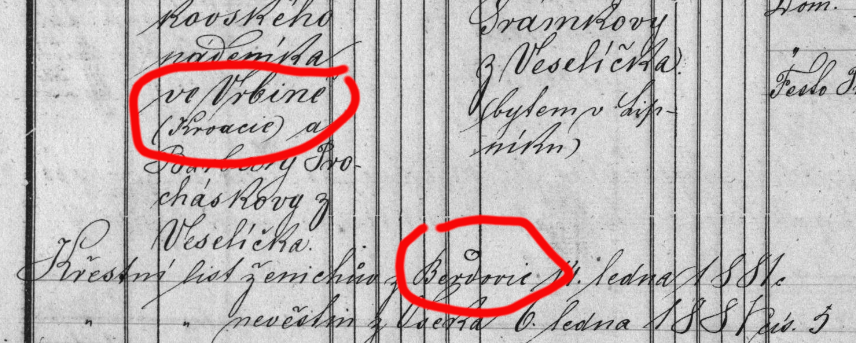 kovského
nádeníka
ve Vrbině
(Kroacie) a
Barbory Pro-
cháskovy z
Veselíčka.
Šrámkovy
z Veselíčka
(bytem v Lip-
níku)
Dom.
"
Festo
Křestní list ženichův z ledna 1881.
" " nevěstin z Oseka 6. ledna 1881 čís. 5